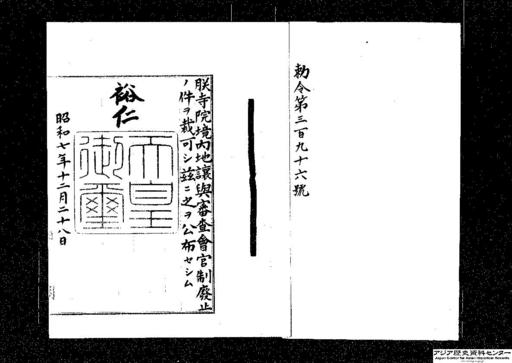 勅令第三百九十六號
朕寺院境內地讓與審查會官制廢止
ノ件ヲ裁可シ茲ニ之ヲ公布セシム
裕仁
天皇御璽
昭和七年十二月二十八日
アジア歴史資料センター
Japan Center for Asian Historical Records